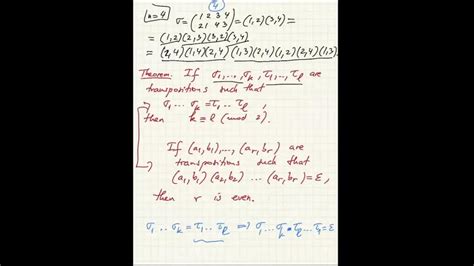 n=4
σ = (1 2 3 4 / 2 1 4 3) = (1,2)(3,4) =
= (1,2)(2,3)(3,2)(3,4)
= (2,4)(1,4)(2,4)(1,3)(2,4)(1,2)(2,4)(1,3)
Theorem. If σ₁,..,σₖ, τ₁,..,τₗ are
transpositions such that
σ₁...σₖ = τ₁..τₗ ,
then k ≡ l (mod 2).
If (a₁,b₁),...,(aᵣ,bᵣ) are
transpositions such that
(a₁,b₁)(a₂,b₂) ... (aᵣ,bᵣ)=ε,
then r is even.
σ₁..σₖ = τ₁..τₗ ⟹ σ₁...σₖ τₗ...τ₁=ε